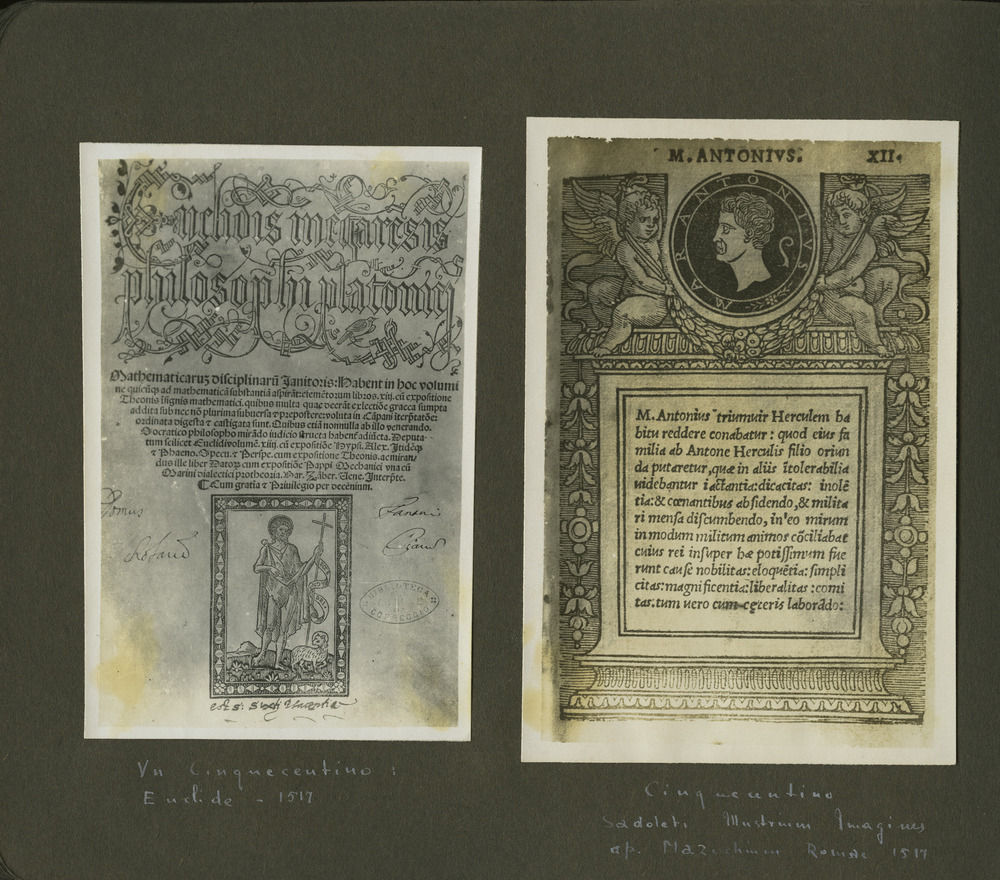 Euclidis megarensis
philosophi platonici
Mathematicaruȝ disciplinarū Janitoris: Habent in hoc volumi
ne quicūqȝ ad mathematicā substantiā aspirāt: elemētorum libros. xiij. cū expositiōe
Theonis insignis mathematici. quibus multa quae deerāt ex lectiōe graeca sumpta
addita sub nec nō plurima subuersa & prepostere: voluta in Cāpani īterpratōe:
ordinata digesta & castigata sunt. Quibus etiā nonnulla ab illo venerando
Socratico philosopho mirādo iudicio structa habent adiūcta. Deputa-
tum scilicet Euclidi volumē. xiiij. cū expositiōe Hypsi. Alex. Itidēqȝ
& Phaeno. Specu. & Perspe. cum expositione Theonis. ac miran/
dus ille liber Datoȝ cum expositiōe Pappi Mechanici vna cū
Marini dialectici protheoria. Bar. Zāber. Vene. Interpte.
Cum gratia & Priuilegio per decenium.
Domus
BIBLIOTECA
CORREGGIO
Vn Cinquecentino:
Euclide - 1517
M. ANTONIVS. XII.
MAR ANTONIVS
M. Antonius triumuir Herculem ha
bitu reddere conabatur: quod eius fa
milia ab Antone Herculis filio oriun
da putaretur, quæ in aliis ītolerabilia
uidebantur iactantia: dicacitas: inolē
tia: & cœnantibus absidendo, & milita
ri mensa discumbendo, in eo mirum
in modum militum animos cōciliabat
cuius rei insuper hæ potissimum fue
runt causæ nobilitas: eloquētia: simpli
citas: magnificentia: liberalitas: comi
tas. tum uero cum cęteris laborādo:
Cinquecentino
Sadoleti Illustrium Imagines
ap. Mazochium Romae 1517